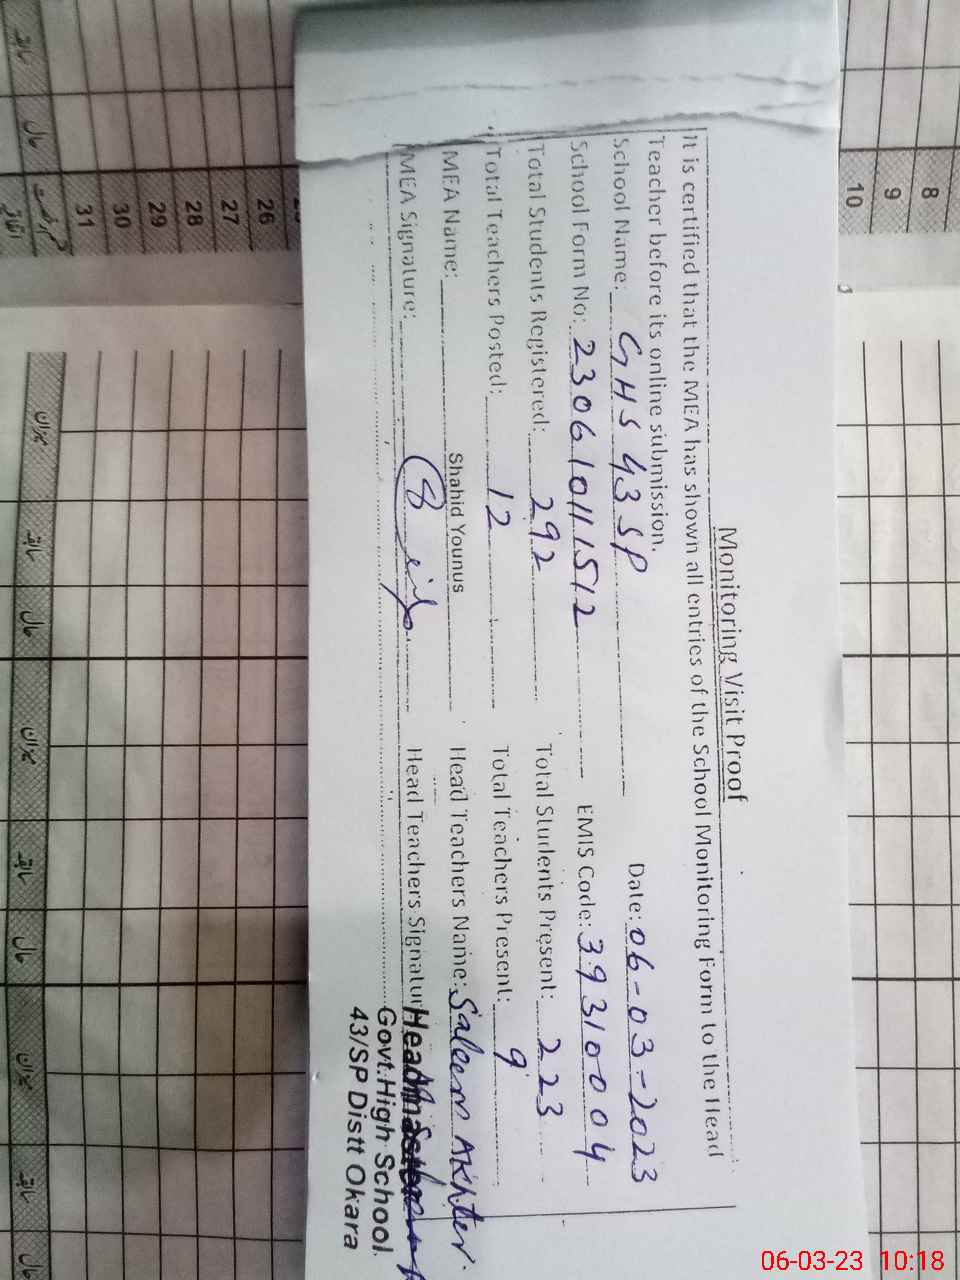 Monitoring Visit Proof
It is certified that the MEA has shown all entries of the School Monitoring Form to the Head
Teacher before its online submission.
Date: 06-03-2023
School Name: GHS 43 SP
School Form No: 2306101 11512 EMIS Code: 39310004
Total Students Registered: 292 Total Students Present: 223
Total Teachers Posted: 12 Total Teachers Present: 9
MEA Name: Shahid Younus Head Teachers Name: Saleem Akhter
MEA Signature: Head Teachers Signatur
Headmaster
Govt.High School.
43/SP Distt Okara
8
9
10
26
27
28
29
30
31
میزان
سابقہ
حال
میزان
سابقہ
حال
میزان
سابقہ
حال
06-03-23 10:18